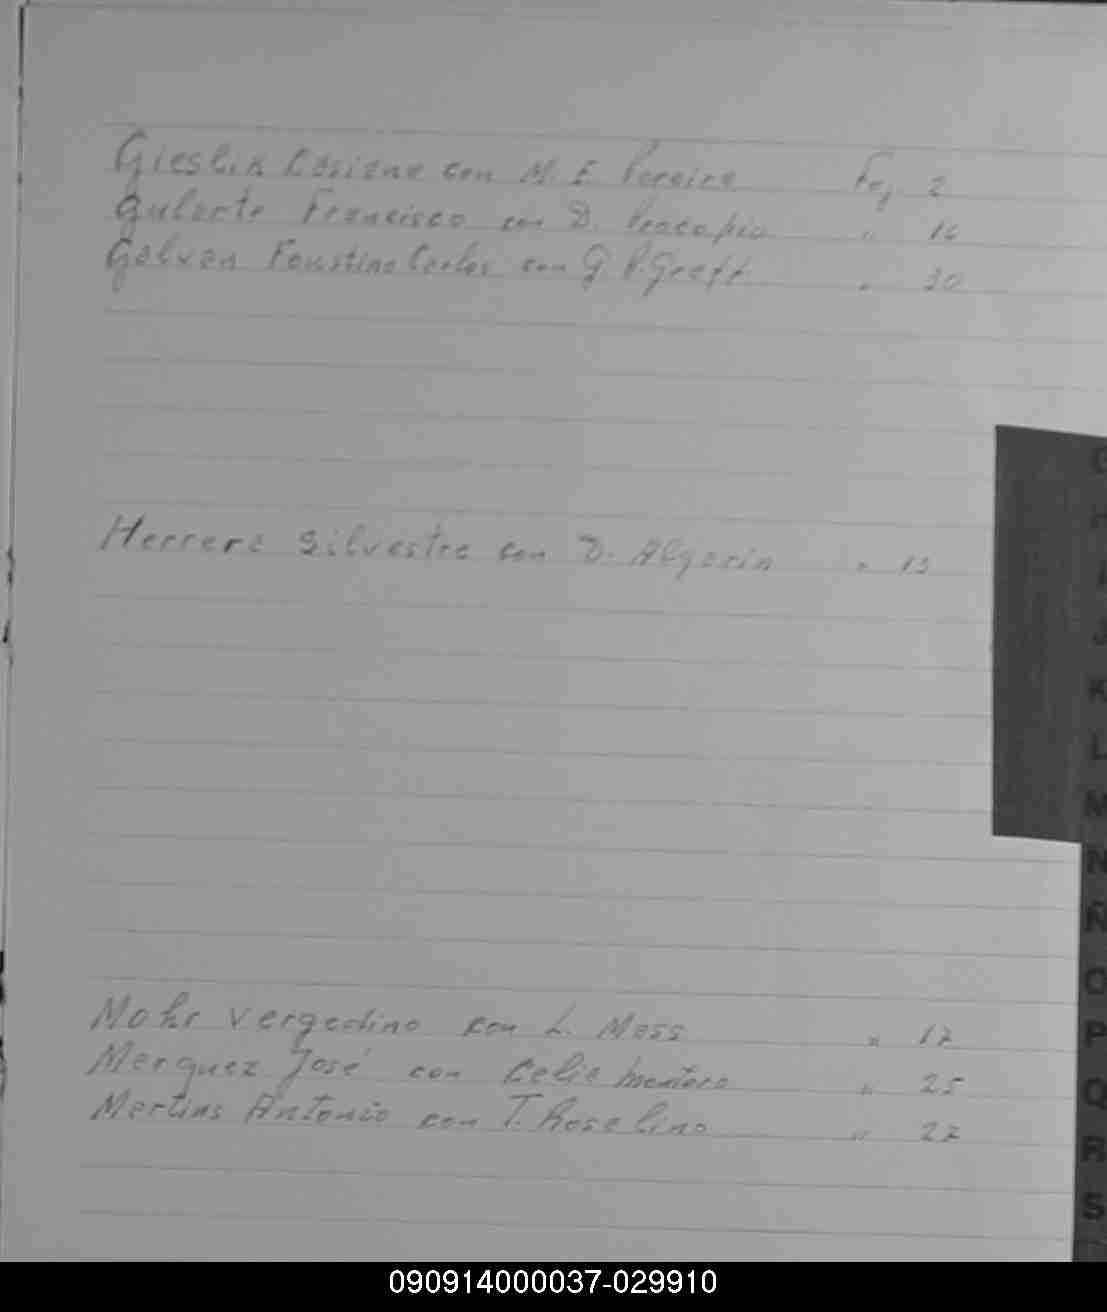 Gieslin Casiano con M. E. Pereira Faj 2
Gularte Francisco con D. Procopio " 16
Galvan Faustino Carlos con G P. Graff " 30
Herrera Silvestre con D. Algarin " 13
Mohr Vergedino con L. Mass " 17
Marquez José con Celia " 25
Martins Antonio con T. Roselino " 27
G
I
J
K
L
M
N
Ñ
O
P
Q
R
S
090914000037-029910